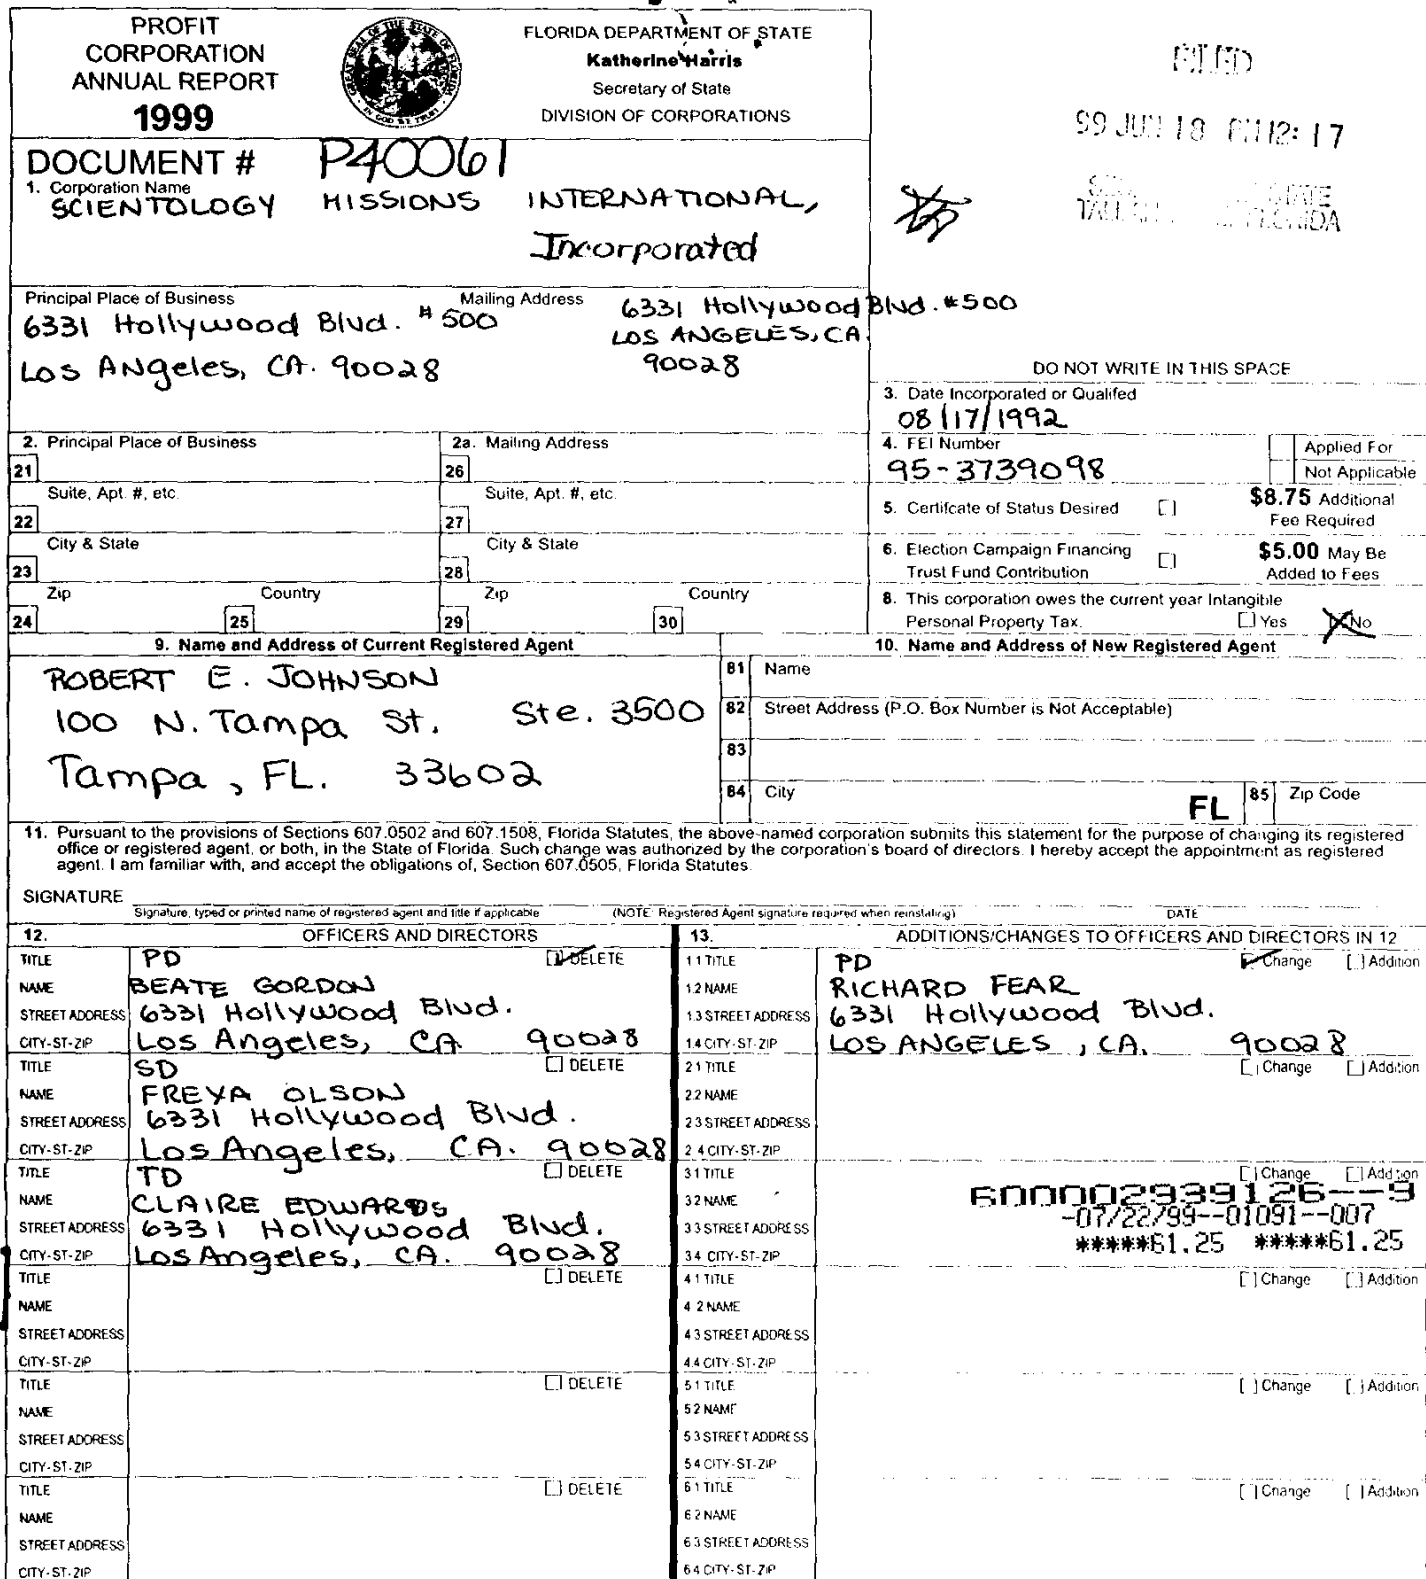 PROFIT
CORPORATION
ANNUAL REPORT
1999
GREAT SEAL OF THE STATE OF FLORIDA
IN GOD WE TRUST
FLORIDA DEPARTMENT OF STATE
Katherine Harris
Secretary of State
DIVISION OF CORPORATIONS
FILED
99 JUN 18 PM 12: 17
STATE
FLORIDA
DOCUMENT # P40061
1. Corporation Name
SCIENTOLOGY MISSIONS INTERNATIONAL,
Incorporated
Principal Place of Business
6331 Hollywood Blvd. #500
Los Angeles, CA. 90028
Mailing Address
6331 Hollywood Blvd. #500
LOS ANGELES, CA.
90028
DO NOT WRITE IN THIS SPACE
3. Date Incorporated or Qualifed
08/17/1992
2. Principal Place of Business
21
Suite, Apt. #, etc.
22
City & State
23
Zip Country
24 25
2a. Mailing Address
26
Suite, Apt. #, etc.
27
City & State
28
Zip Country
29 30
4. FEI Number
95-3739098
Applied For
Not Applicable
5. Certifcate of Status Desired [ ] $8.75 Additional
Fee Required
6. Election Campaign Financing
Trust Fund Contribution [ ] $5.00 May Be
Added to Fees
8. This corporation owes the current year Intangible
Personal Property Tax. Yes No
9. Name and Address of Current Registered Agent
ROBERT E. JOHNSON
100 N. Tampa St. Ste. 3500
Tampa, FL. 33602
10. Name and Address of New Registered Agent
81 Name
82 Street Address (P.O. Box Number is Not Acceptable)
83
84 City FL 85 Zip Code
11. Pursuant to the provisions of Sections 607.0502 and 607.1508, Florida Statutes, the above-named corporation submits this statement for the purpose of changing its registered
office or registered agent, or both, in the State of Florida. Such change was authorized by the corporation's board of directors. I hereby accept the appointment as registered
agent. I am familiar with, and accept the obligations of, Section 607.0505, Florida Statutes.
SIGNATURE
Signature, typed or printed name of registered agent and title if applicable (NOTE: Registered Agent signature required when reinstating) DATE
12. OFFICERS AND DIRECTORS
TITLE PD DELETE
NAME BEATE GORDON
STREET ADDRESS 6331 Hollywood Blvd.
CITY-ST-ZIP Los Angeles, CA 90028
TITLE SD DELETE
NAME FREYA OLSON
STREET ADDRESS 6331 Hollywood Blvd.
CITY-ST-ZIP Los Angeles, CA. 90028
TITLE TD DELETE
NAME CLAIRE EDWARDS
STREET ADDRESS 6331 Hollywood Blvd.
CITY-ST-ZIP Los Angeles, CA. 90028
TITLE DELETE
NAME
STREET ADDRESS
CITY-ST-ZIP
TITLE DELETE
NAME
STREET ADDRESS
CITY-ST-ZIP
TITLE DELETE
NAME
STREET ADDRESS
CITY-ST-ZIP
13. ADDITIONS/CHANGES TO OFFICERS AND DIRECTORS IN 12
1.1 TITLE PD Change Addition
1.2 NAME RICHARD FEAR
1.3 STREET ADDRESS 6331 Hollywood Blvd.
1.4 CITY-ST-ZIP LOS ANGELES, CA. 90028
2.1 TITLE Change Addition
2.2 NAME
2.3 STREET ADDRESS
2.4 CITY-ST-ZIP
3.1 TITLE Change Addition
3.2 NAME 600002939126--9
-07/22/99--01091--007
3.3 STREET ADDRESS
*****61.25 *****61.25
3.4 CITY-ST-ZIP
4.1 TITLE Change Addition
4.2 NAME
4.3 STREET ADDRESS
4.4 CITY-ST-ZIP
5.1 TITLE Change Addition
5.2 NAME
5.3 STREET ADDRESS
5.4 CITY-ST-ZIP
6.1 TITLE Change Addition
6.2 NAME
6.3 STREET ADDRESS
6.4 CITY-ST-ZIP